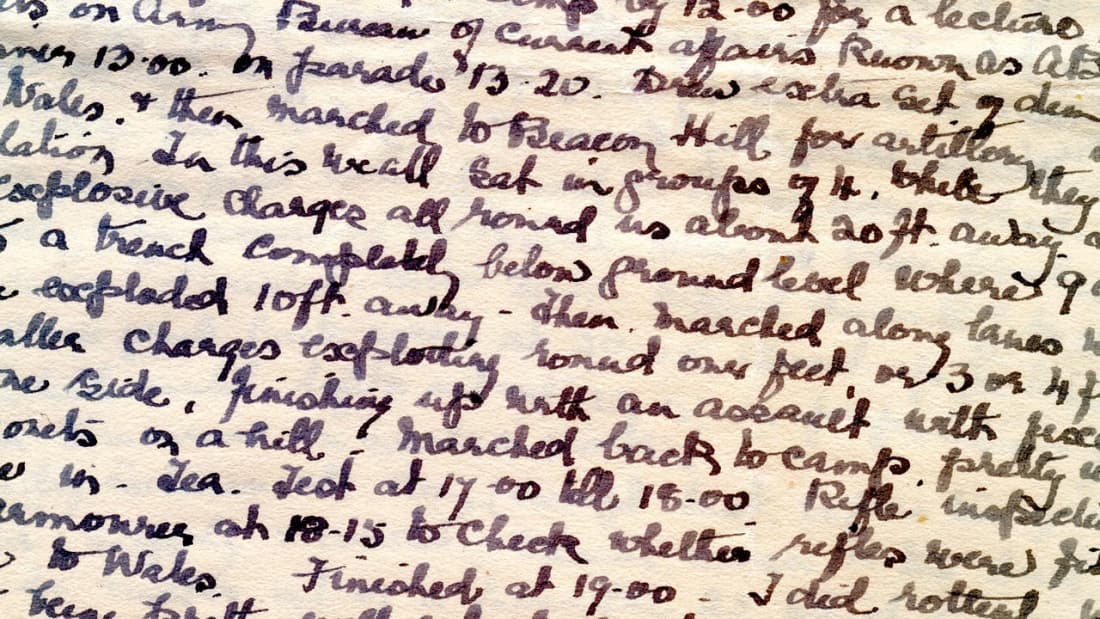 on Army Bureau of Current affairs Known as AB
13.00. on parade 13.20. Drew extra set of
Wales. & then marched to Beacon Hill for artillery
lation In this we all sat in groups of 4. While they
explosive charges all round us about 20 ft. away
a trench completely below ground level where 9
exploded 10ft. away - Then. Marched along lanes
aller charges exploding round our feet, or 3 or 4 f
ne side, finishing up with an assault with
onets on a hill. Marched back to camp. pretty
in. Tea. Test at 17-00 till 18-00 Rifle inspecti
armourer at 18-15 to check whether rifles were fi
to Wales. Finished at 19-00 - I did rotten